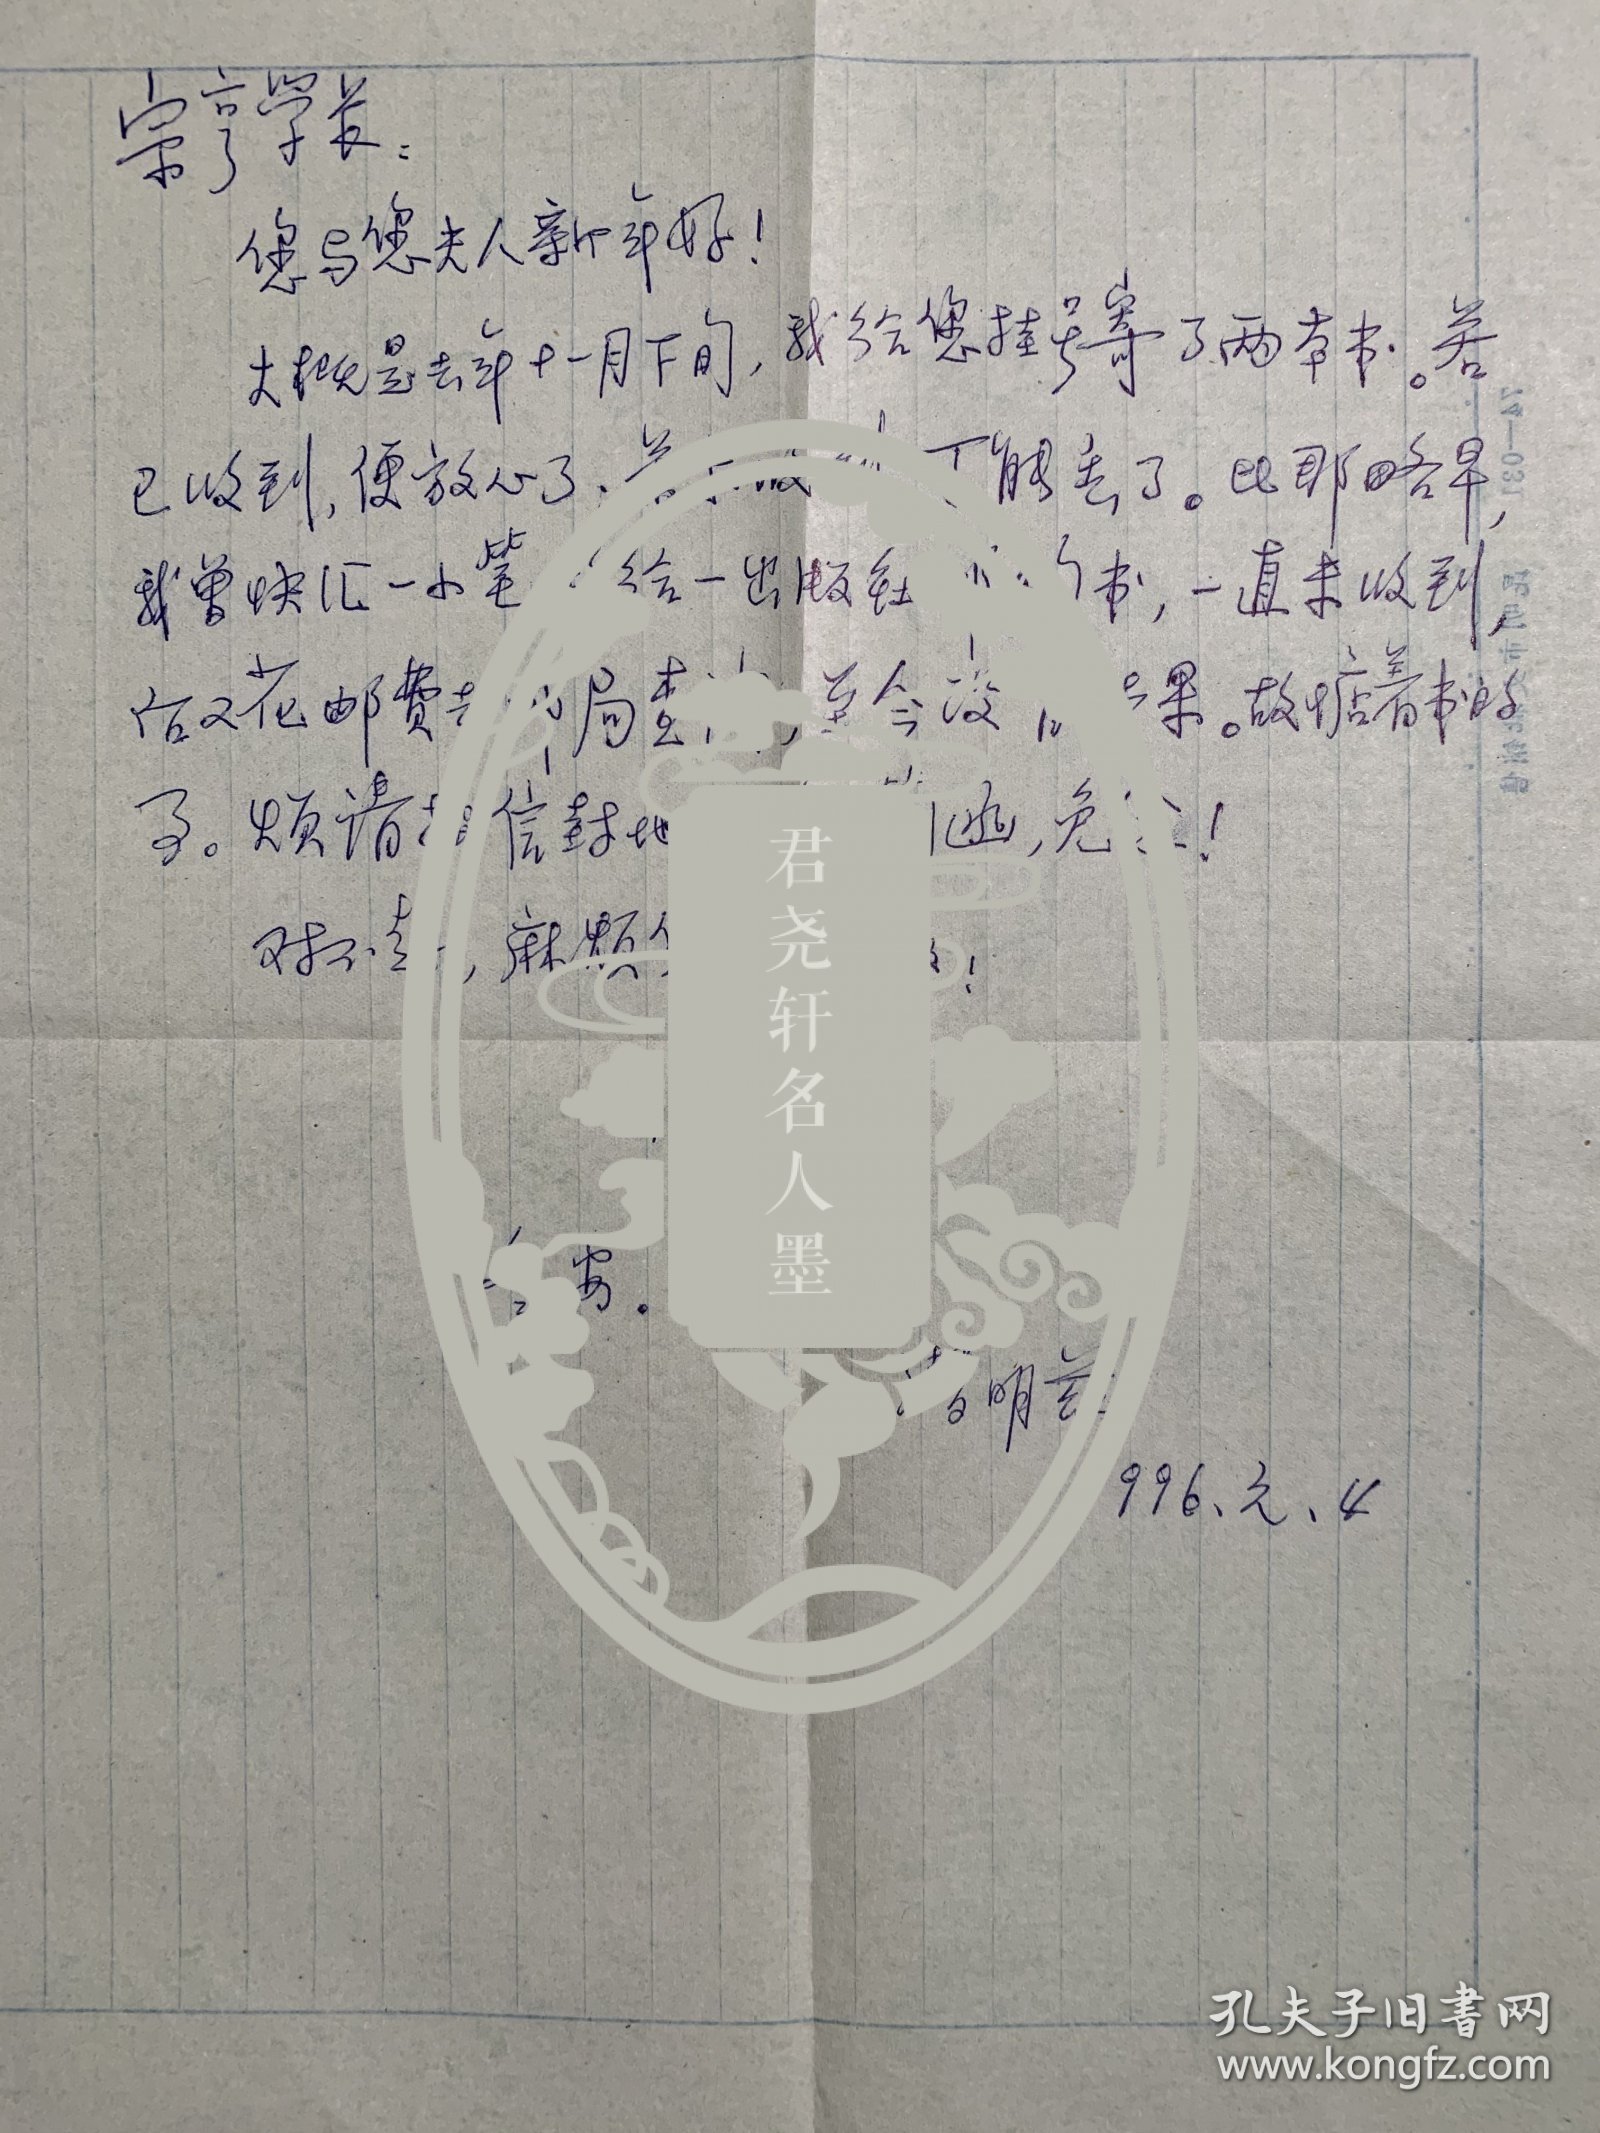 宗亨学长：
您与您夫人新年好！
大概是去年十一月下旬，我给您挂号寄了两本书。若
已收到，便放心了，若 能丢了。比那略早，
我曾快汇一小笔 给一出版社 书，一直未收到，
后又花邮费去 局查 ，至今没 果。故惦着书的
事。烦请 信封地 函，免 ！
对不起，麻烦 ！
安。
明
996、元、4
君尧轩名人墨
孔夫子旧书网
www.kongfz.com